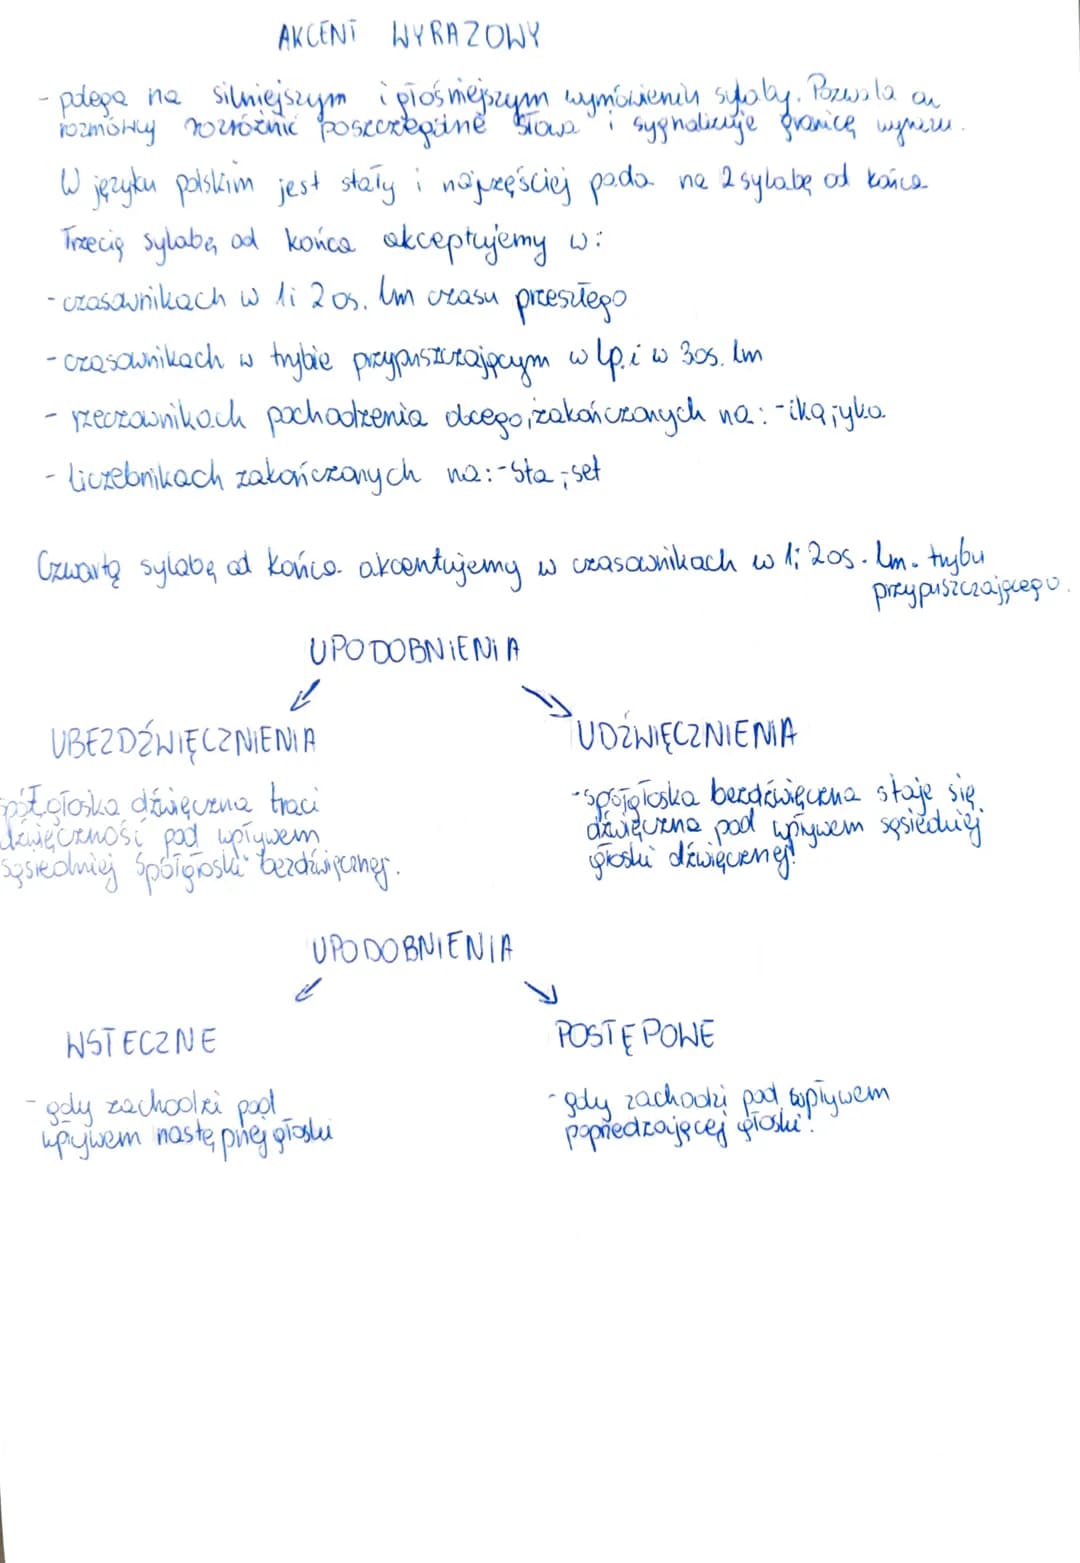 AKCENT WYRAZOWY
- polega na silniejszym i głośniejszym wymówieniu sylaby. Pozwala on
rozmówcy rozróżnić poszczególne słowa i sygnalizuje granicę wyrazu.
W języku polskim jest stały i najczęściej pada na 2 sylabę od końca
Trzecią sylabę od końca akceptujemy w:
- czasownikach w 1 i 2 os. lm czasu przeszłego
- czasownikach w trybie przypuszczającym w lp. i w 3os. lm
- rzeczownikach pochodzenia obcego, zakończonych na: -ika, -yka
- liczebnikach zakończonych na: -sta, -set
Czwartą sylabę od końca akcentujemy w czasownikach w 1 i 2os. lm. trybu
przypuszczającego.
UPODOBNIENIA
UBEZDŹWIĘCZNIENIA
UDŹWIĘCZNIENIA
spółgłoska dźwięczna traci
dźwięczność pod wpływem
sąsiedniej spółgłoski bezdźwięcznej.
- spółgłoska bezdźwięczna staje się
dźwięczna pod wpływem sąsiedniej
głoski dźwięcznej.
UPODOBNIENIA
WSTECZNE
POSTĘPOWE
- gdy zachodzi pod
wpływem następnej głoski
- gdy zachodzi pod wpływem
poprzedzającej głoski.